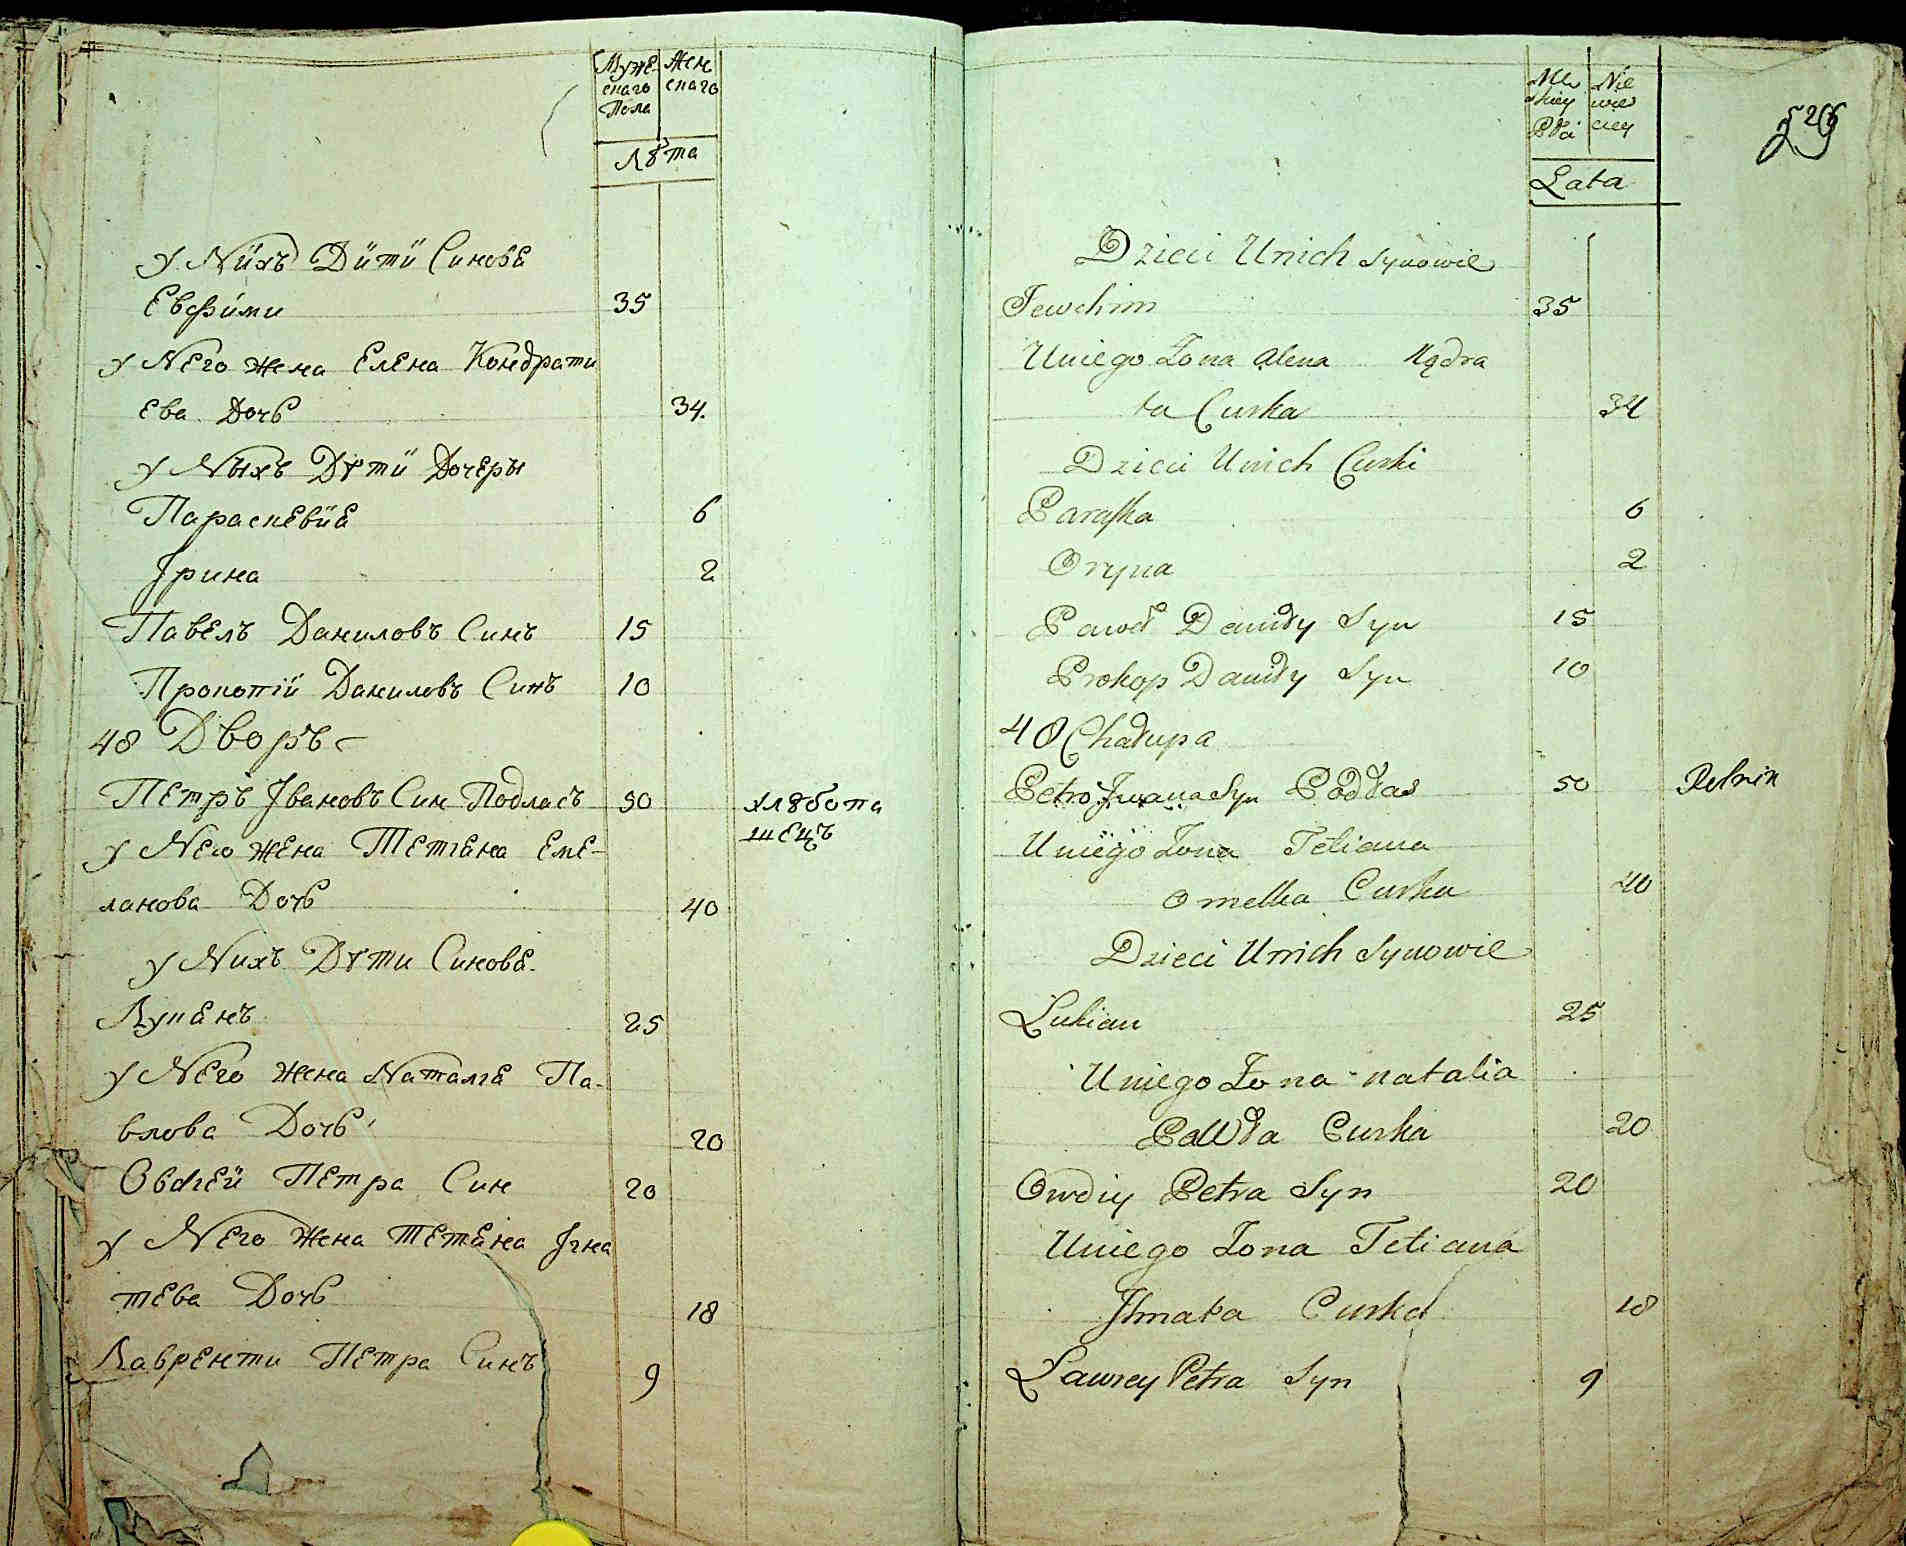 Муже Жен
скаго скаго
Пола
Лѣта
у Нихъ Дити Синове
Евфими
35
у Него жена Елена Кондрати
ева Дочъ
34.
у Ныхъ Дѣти Дочеры
Параскевие
6
Ірина
2
Павелъ Даниловъ Синъ
15
Прокопій Даниловъ Синъ
10
48 Дворъ
Петръ Івановъ Син Подласъ
50
хлѣбопа
шецъ
у Него жена Тетяна Еме-
лянова Дочъ
40
у Нихъ Дѣти Синове.
Лукянъ
25
у Него жена Наталіе Па-
влова Дочъ
20
Овдіей Петра Син
20
у Него жена Тетяна Ігна
тева Дочъ
18
Лавренти Петра Синъ
9
Płci
Lata
Dzieci Unich Synowie
Jewchim
35
Uniego Żona Alena Kądra
ta Curka
34
Dzieci Unich Curki
Paraska
6
Oryna
2
Paweł Daniły Syn
15
Prokop Daniły Syn
10
48 Chałupa
Petro Jwana Syn Podłas
50
Rolnik
Uniego Żona Tetiana
Omelka Curka
40
Dzieci Unich Synowie
Lukian
25
Uniego Żona natalia
Pawła Curka
20
Owdiy Petra Syn
20
Uniego Żona Tetiana
Jhnata Curka
18
Lawrey Petra Syn
9